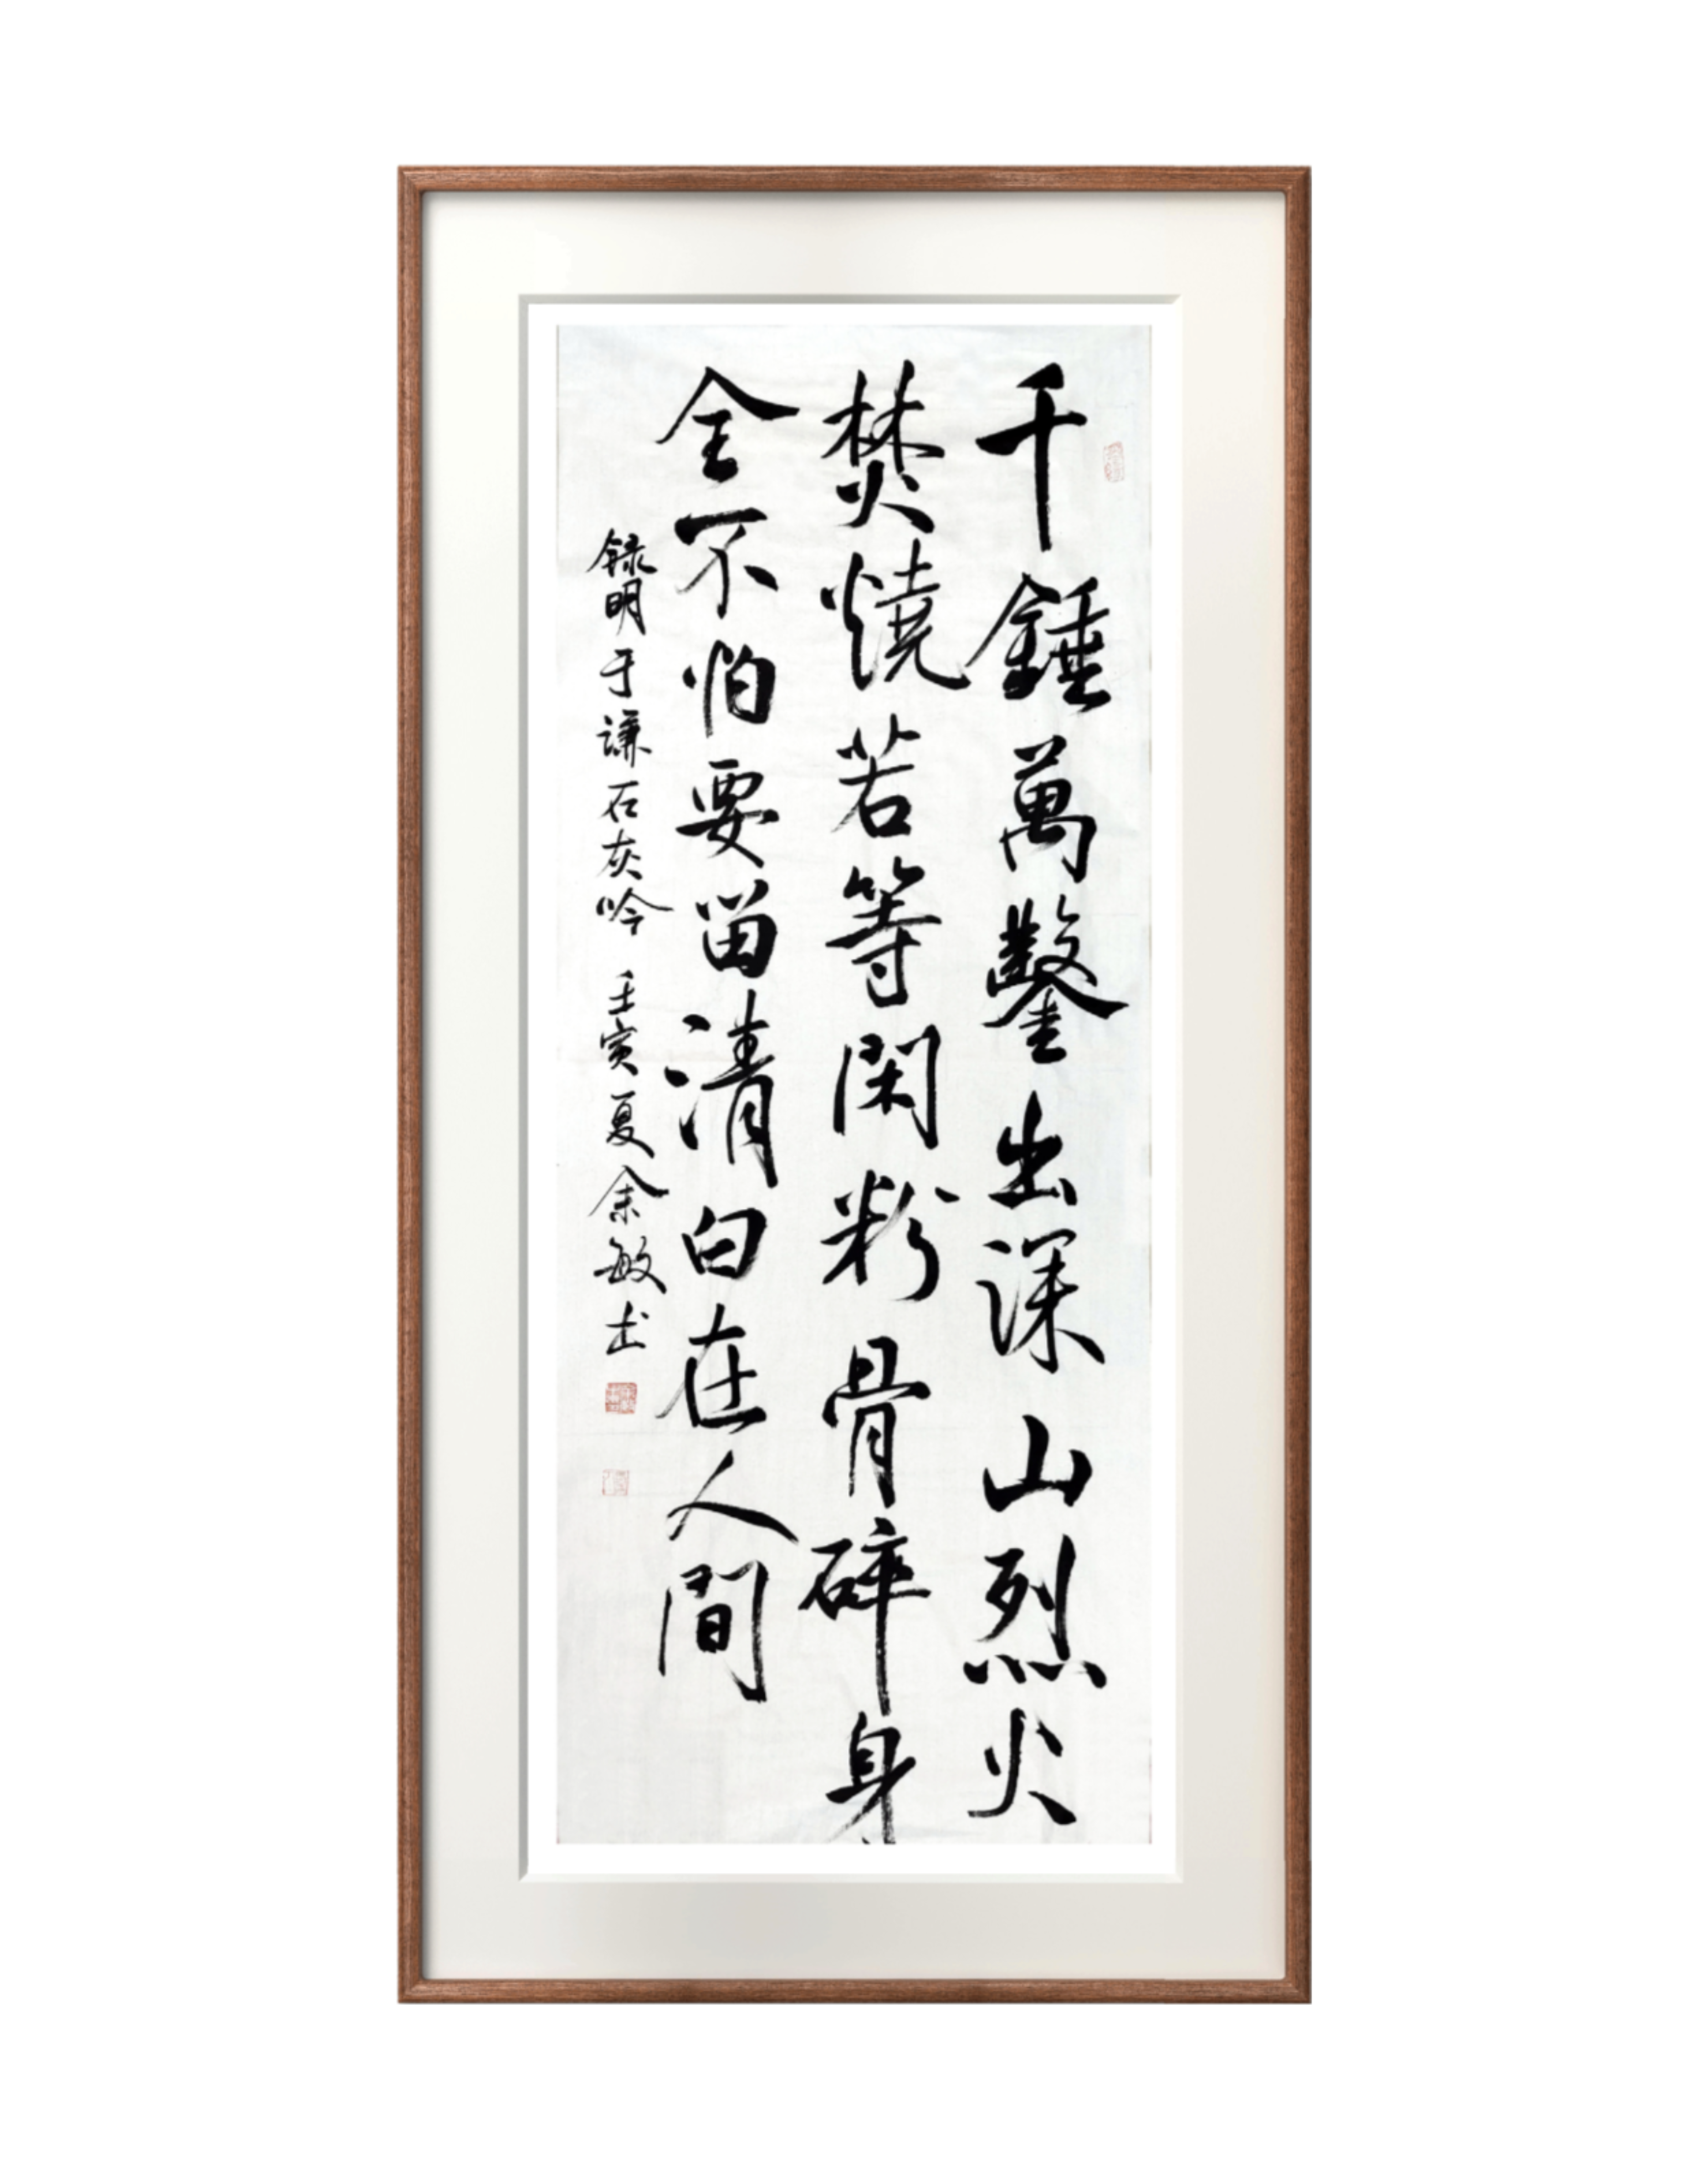 千錘萬鑿出深山烈火
焚燒若等閑粉骨碎身
全不怕要留清白在人間
録明于謙石灰吟 壬寅夏余敏书